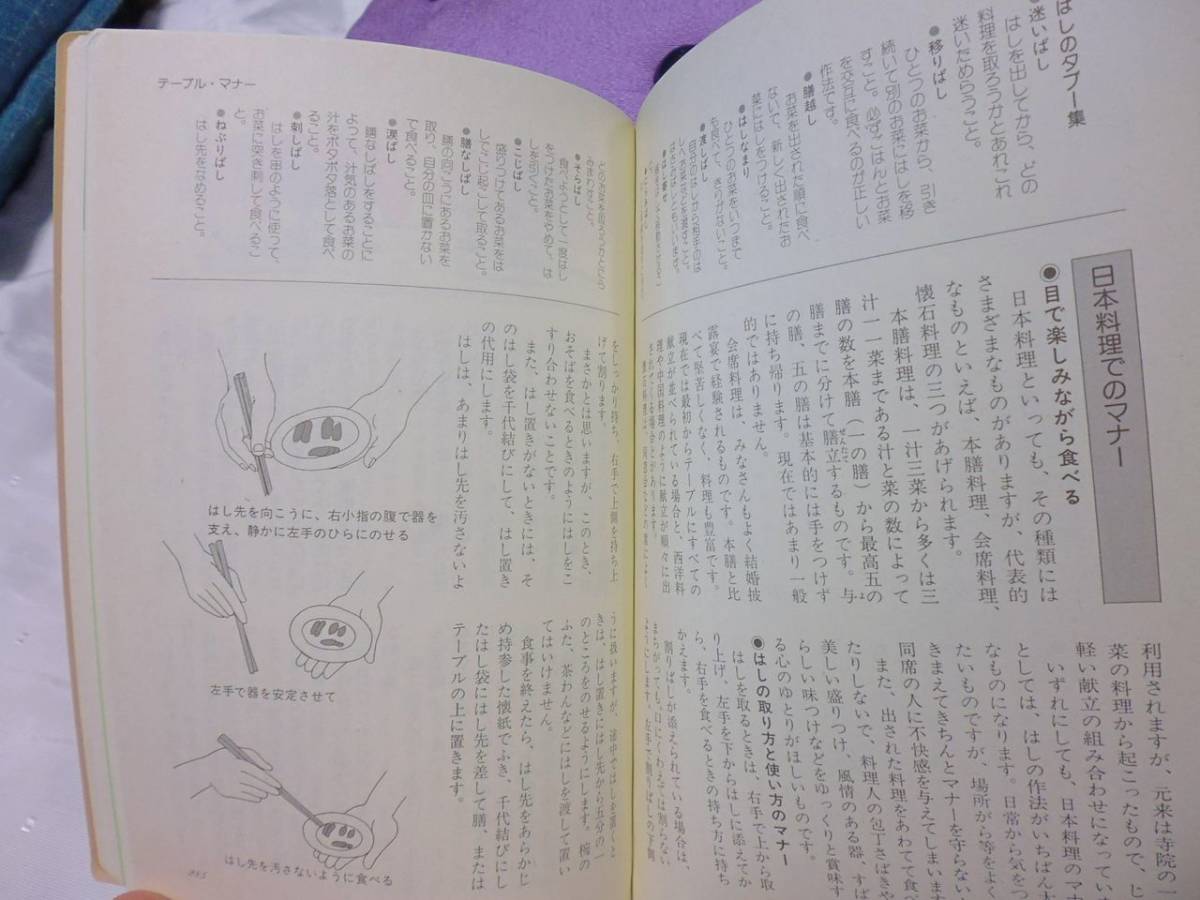 はしのタブー集
●迷いばし
はしを出してから、どの
料理を取ろうかとあれこれ
迷いためらうこと。
●移りばし
ひとつのお菜から、引き
続いて別のお菜にはしを移
すこと。必ずごはんとお菜
を交互に食べるのが正しい
作法です。
●膳越し
お菜を出された順に食べ
ないで、新しく出されたお
菜にはしをつけること。
●はしなまり
ひとつのお菜をいつまで
も食べて、きりがないこと。
●渡しばし
自分のはしから相手のは
しへお菜などを渡すこと。
はさみばしともいいます。
●はし寄せ
日本料理でのマナー
●目で楽しみながら食べる
日本料理といっても、その種類には
さまざまなものがありますが、代表的
なものといえば、本膳料理、会席料理、
懐石料理の三つがあげられます。
本膳料理は、一汁三菜から多くは三
汁一一菜まである汁と菜の数によって
膳の数を本膳（一の膳）から最高五の
膳までに分けて膳立するものです。与
の膳、五の膳は基本的には手をつけず
に持ち帰ります。現在ではあまり一般
的ではありません。
会席料理は、みなさんもよく結婚披
露宴で経験されるものです。本膳と比
べて堅苦しくなく、料理も豊富です。
現在では最初からテーブルにすべての
献立が並べられている場合と、西洋料
理や中国料理のように献立が順々に出
されてくる場合とがあります。
利用されますが、元来は寺院の一
菜の料理から起こったもので、じ
軽い献立の組み合わせになってい
いずれにしても、日本料理のマナ
としては、はしの作法がいちばん大
なものになります。日常から気をつ
たいものですが、場所がら等をよく
きまえてきちんとマナーを守らない
同席の人に不快感を与えてしまいます
また、出された料理をあわてて食べ
たりしないで、料理人の包丁さばきや
美しい盛りつけ、風情のある器、すば
らしい味つけなどをゆっくりと賞味す
る心のゆとりがほしいものです。
●はしの取り方と使い方のマナー
はしを取るときは、右手で上から取
り上げ、左手を下からはしに添えてか
ら、右手を食べるときの持ち方に持ち
かえます。
割りばしが添えられている場合は、
まちがっても、口にくわえては割らない
ようにします。左手で割りばしの下側
テーブル・マナー
みまわすこと。
●そらばし
食べようとして一度はし
をつけたお菜をやめて、は
しを引くこと。
●こじばし
盛りつけてあるお菜をは
しでこじ起こして取ること。
●膳なしばし
膳の向こうにあるお菜を
取り、自分の皿に置かない
で食べること。
●涙ばし
膳なしばしをすることに
よって、汁気のあるお菜の
汁をポタポタ落として食べ
ること。
●刺しばし
はしを串のように使って、
お菜に突き刺して食べるこ
と。
●ねぶりばし
はし先をなめること。
をしっかり持ち、右手で上側を持ち上
げて割ります。
まさかとは思いますが、このとき、
おそばを食べるときのようにはしをこ
すり合わせないことです。
また、はし置きがないときには、そ
のはし袋を千代結びにして、はし置き
の代用にします。
はしは、あまりはし先を汚さないよ
うに扱いますが、途中ではしを置くと
きは、はし置きにはし先から五分の一
のところをのせるようにします。椀の
ふた、茶わんなどにはしを渡して置い
てはいけません。
食事を終えたら、はし先をあらかじ
め持参した懐紙でふき、千代結びにし
たはし袋にはし先を差して膳、または
テーブルの上に置きます。
はし先を向こうに、右小指の腹で器を
支え、静かに左手のひらにのせる
左手で器を安定させて
はし先を汚さないように食べる